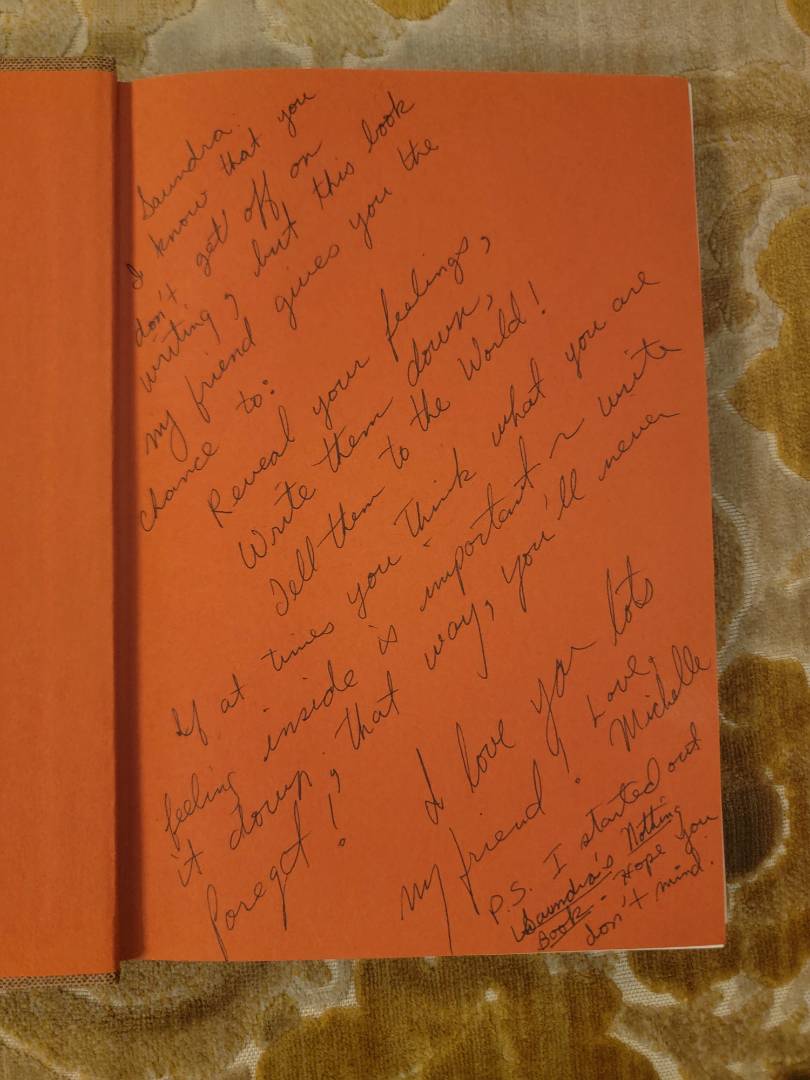 Saundra.
I know that you
don't get off on
writing, but this book
my friend gives you the
chance to:
Reveal your feelings,
Write them down,
Tell them to the World!
If at times you think what you are
feeling inside is important ~ write
it down; that way, you'll never
foreget!
I love you lots
my friend! Love,
Michelle
P.S. I started out
Saundra's Nothing
Book - Hope you
don't mind.